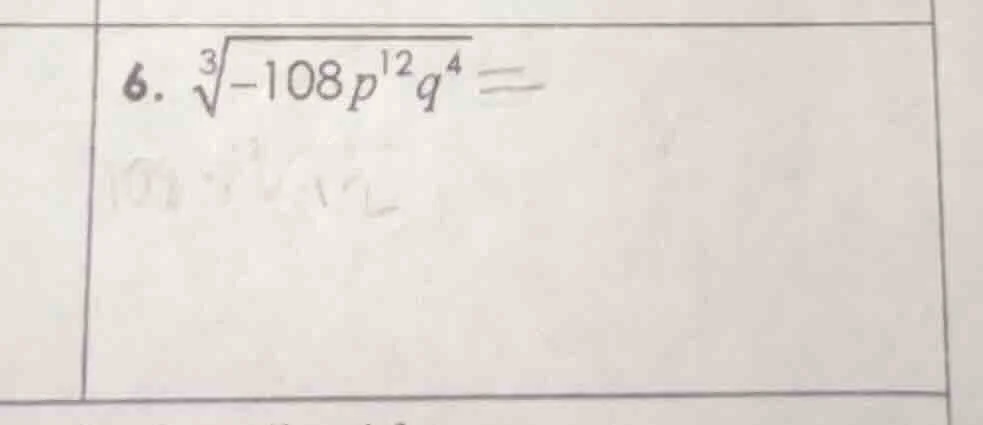 6. ∛-108p¹²q⁴ =